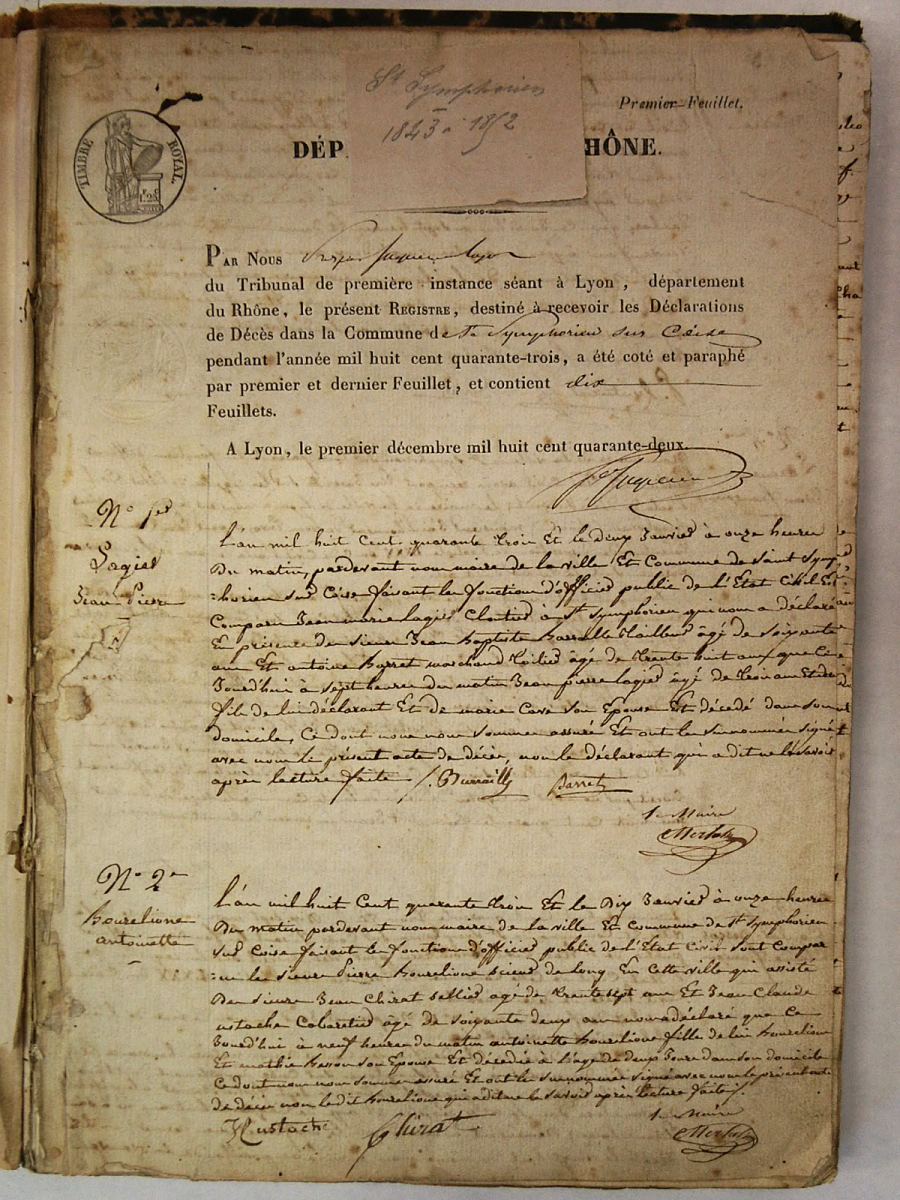 St Symphorien
1843 à 1852
Premier Feuillet.
TIMBRE ROYAL.
DÉP HÔNE.
PAR NOUS
du Tribunal de première instance séant à Lyon, département
du Rhône, le présent REGISTRE, destiné à recevoir les Déclarations
de Décès dans la Commune de St Symphorien sur Coise
pendant l'année mil huit cent quarante-trois, a été coté et paraphé
par premier et dernier Feuillet, et contient dix
Feuillets.
A Lyon, le premier décembre mil huit cent quarante-deux.
N° 1er
Lagier
Jean Pierre
L'an mil huit Cent quarante trois Et le deux Janvier à onze heures
Du matin, pardevant nous maire de la ville Et Commune de Saint Symp
horien sur Coise faisant les fonctions d'officier public de l'Etat Civil Est
Comparu Jean marie lagier Cloutier à St Symphorien qui nous a déclaré
En présence des sieurs Jean Baptiste tailleur âgé de soixante
ans Et antoine Barret marchand âgé de trente huit ans que Ce
Jourd'hui à sept heures du matin Jean pierre lagier âgé de trois ans Et demi
fils de lui déclarant Et de marie son Epouse Est décédé dans son
domicile, Ce dont nous nous sommes assuré Et ont les surnommés signé
avec nous le présent acte de décès, non le déclarant qui a dit ne le savoir
après lecture faite Barret
Le Maire
N° 2e
hourelione
antoinette
L'an mil huit Cent quarante trois Et le Dix Janvier à onze heures
Du matin pardevant nous maire de la ville Et Commune de St Symphorien
sur Coise faisant les fonctions d'officier public de l'Etat Civil sont Compar
us le sieur Pierre hourelione scieur de long En Cette ville qui assisté
Des sieurs Jean Chirat sellier âgé de trente sept ans Et Jean Claude
ustache Cabaretier âgé de soixante deux ans nous a déclaré que Ce
Jourd'hui à neuf heures du matin antoinette hourelione fille de lui hourelione
Et mathie Besson son Epouse Est décédée à l'age de deux Jours dans son domicile
Ce dont nous nous sommes assuré Et ont les surnommés signé avec nous le présent acte
de décès non le dit hourelione qui a dit ne le savoir après lecture faite
Hustache Chirat
Le Maire